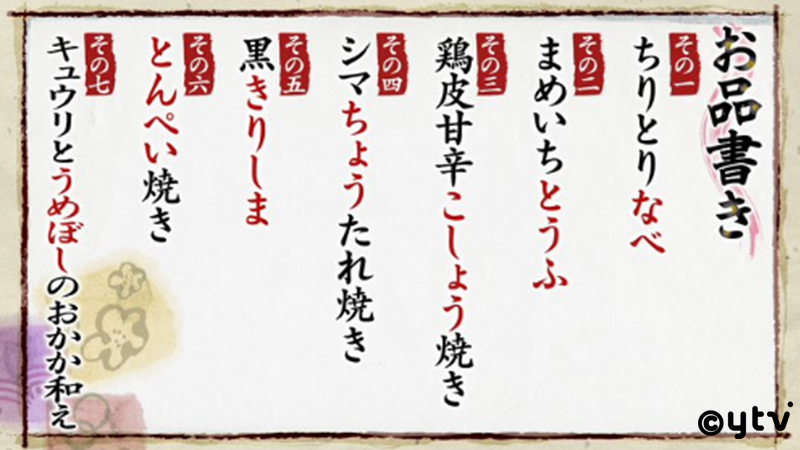 お品書き
その一
ちりとりなべ
その二
まめいちとうふ
その三
鶏皮甘辛こしょう焼き
その四
シマちょうたれ焼き
その五
黒きりしま
その六
とんぺい焼き
その七
キュウリとうめぼしのおかか和え
©ytv